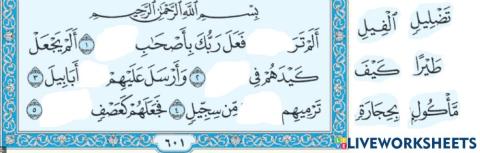 بِسْمِ اللَّهِ الرَّحْمَٰنِ الرَّحِيمِ
أَلَمْ تَرَ فَعَلَ رَبُّكَ بِأَصْحَٰبِ ١ أَلَمْ يَجْعَلْ
كَيْدَهُمْ فِي ٢ وَأَرْسَلَ عَلَيْهِمْ أَبَابِيلَ ٣
تَرْمِيهِم مِّن سِجِّيلٍ ٤ فَجَعَلَهُمْ كَعَصْفٍ ٥
٦٠١
تَضْلِيلٍ الْفِيلِ
طَيْرًا كَيْفَ
مَّأْكُولٍ بِحِجَارَةٍ
LIVEWORKSHEETS